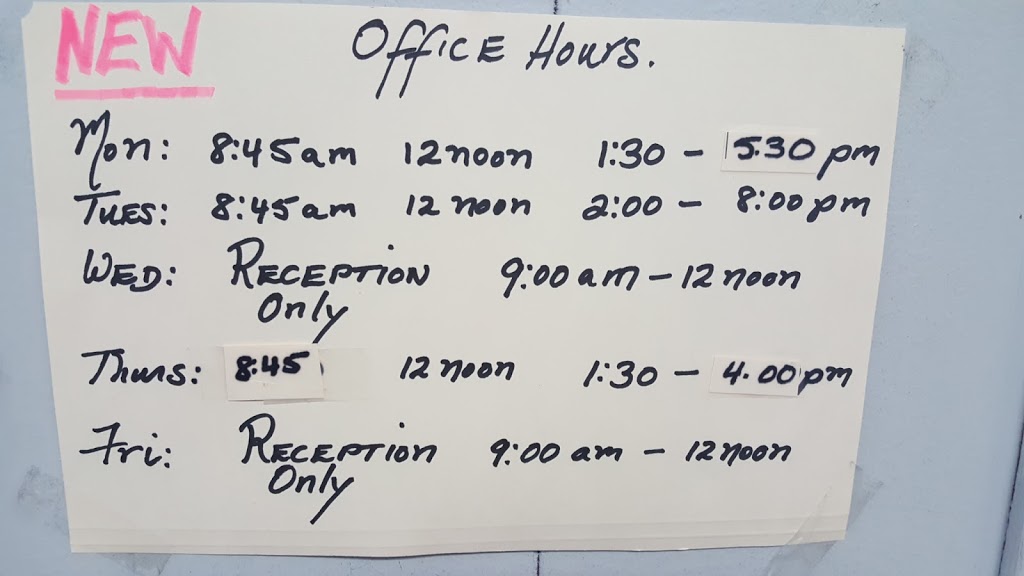 NEW
Office Hours.
Mon: 8:45am 12 noon 1:30 - 5.30 pm
Tues: 8:45am 12 noon 2:00 - 8:00pm
Wed: Reception 9:00 am - 12 noon
Only
Thurs: 8:45 12 noon 1:30 - 4.00 pm
Fri: Reception 9:00 am - 12 noon
Only